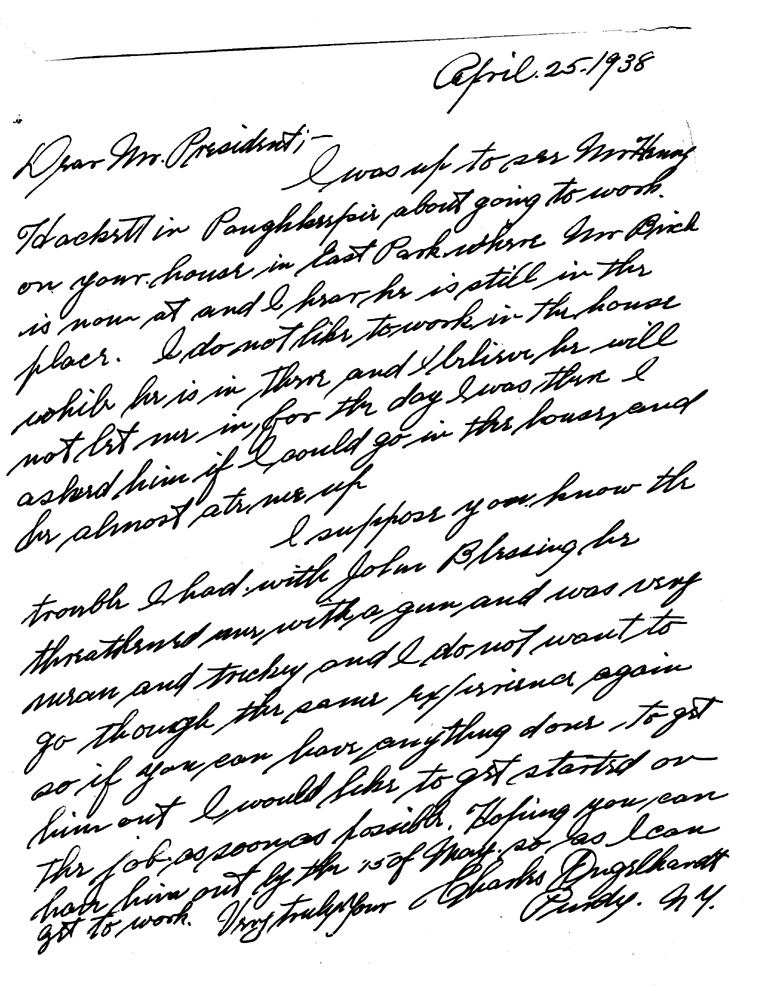 April. 25-1938
Dear Mr. President;-
I was up to see Mr Henry
Hackett in Poughkeepsie about going to work.
on your house in East Park where Mr Birch
is now at and I hear he is still in the
place. I do not like to work in the house
while he is in there and I believe he will
not let me in, for the day I was there I
asked him if I could go in the house, and
he almost ate me up
I suppose you know the
trouble I had with John Blessing he
threathened me, with a gun, and was very
mean and trickey and I do not want to
go though the same experience again
so if you can have anything done, to get
him out I would like to get started on
the job, as soon as possible. Hoping you can
have him out by the 15 of May. so as I can
get to work. Very truly Your Charles Engelhardt
Purdy. N.Y.